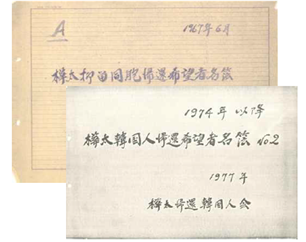 A
1967年6月
樺太抑留同胞帰還希望者名簿
1974年以降
樺太韓国人帰還希望者名簿 No2
1977年
樺太帰還韓国人会